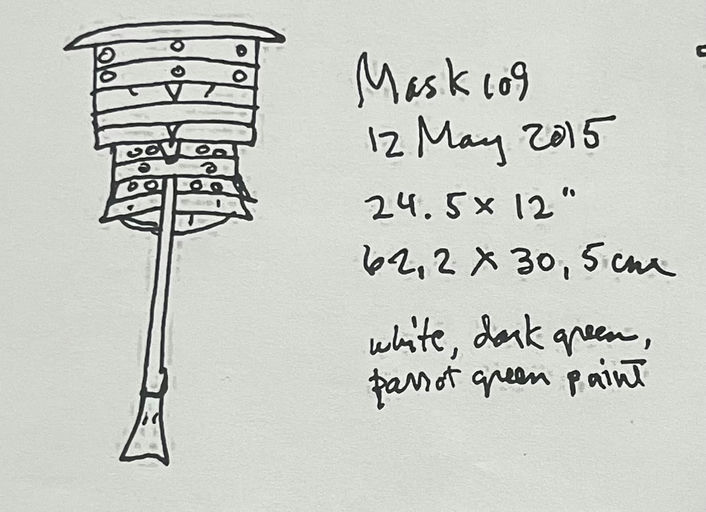 Mask 109
12 May 2015
24.5 x 12"
62,2 x 30,5 cm
white, dark green,
parrot green paint